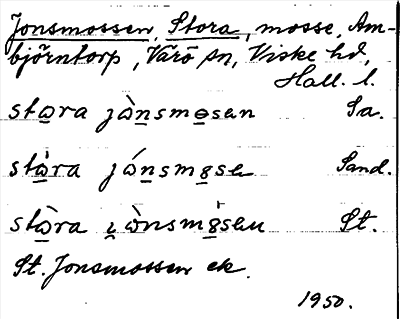 Jonsmossen, Stora, mosse, Am-
björntorp, Värö sn, Viske hd,
Hall. l.
stɷra jɷ̀nsmɵsen Sa.
stɷ̀ra jɷ́nsmꝋse Sand.
stɷ̀ra i̯ɷ̀nsm8̀sen St.
St. Jonsmossen ek.
1950.